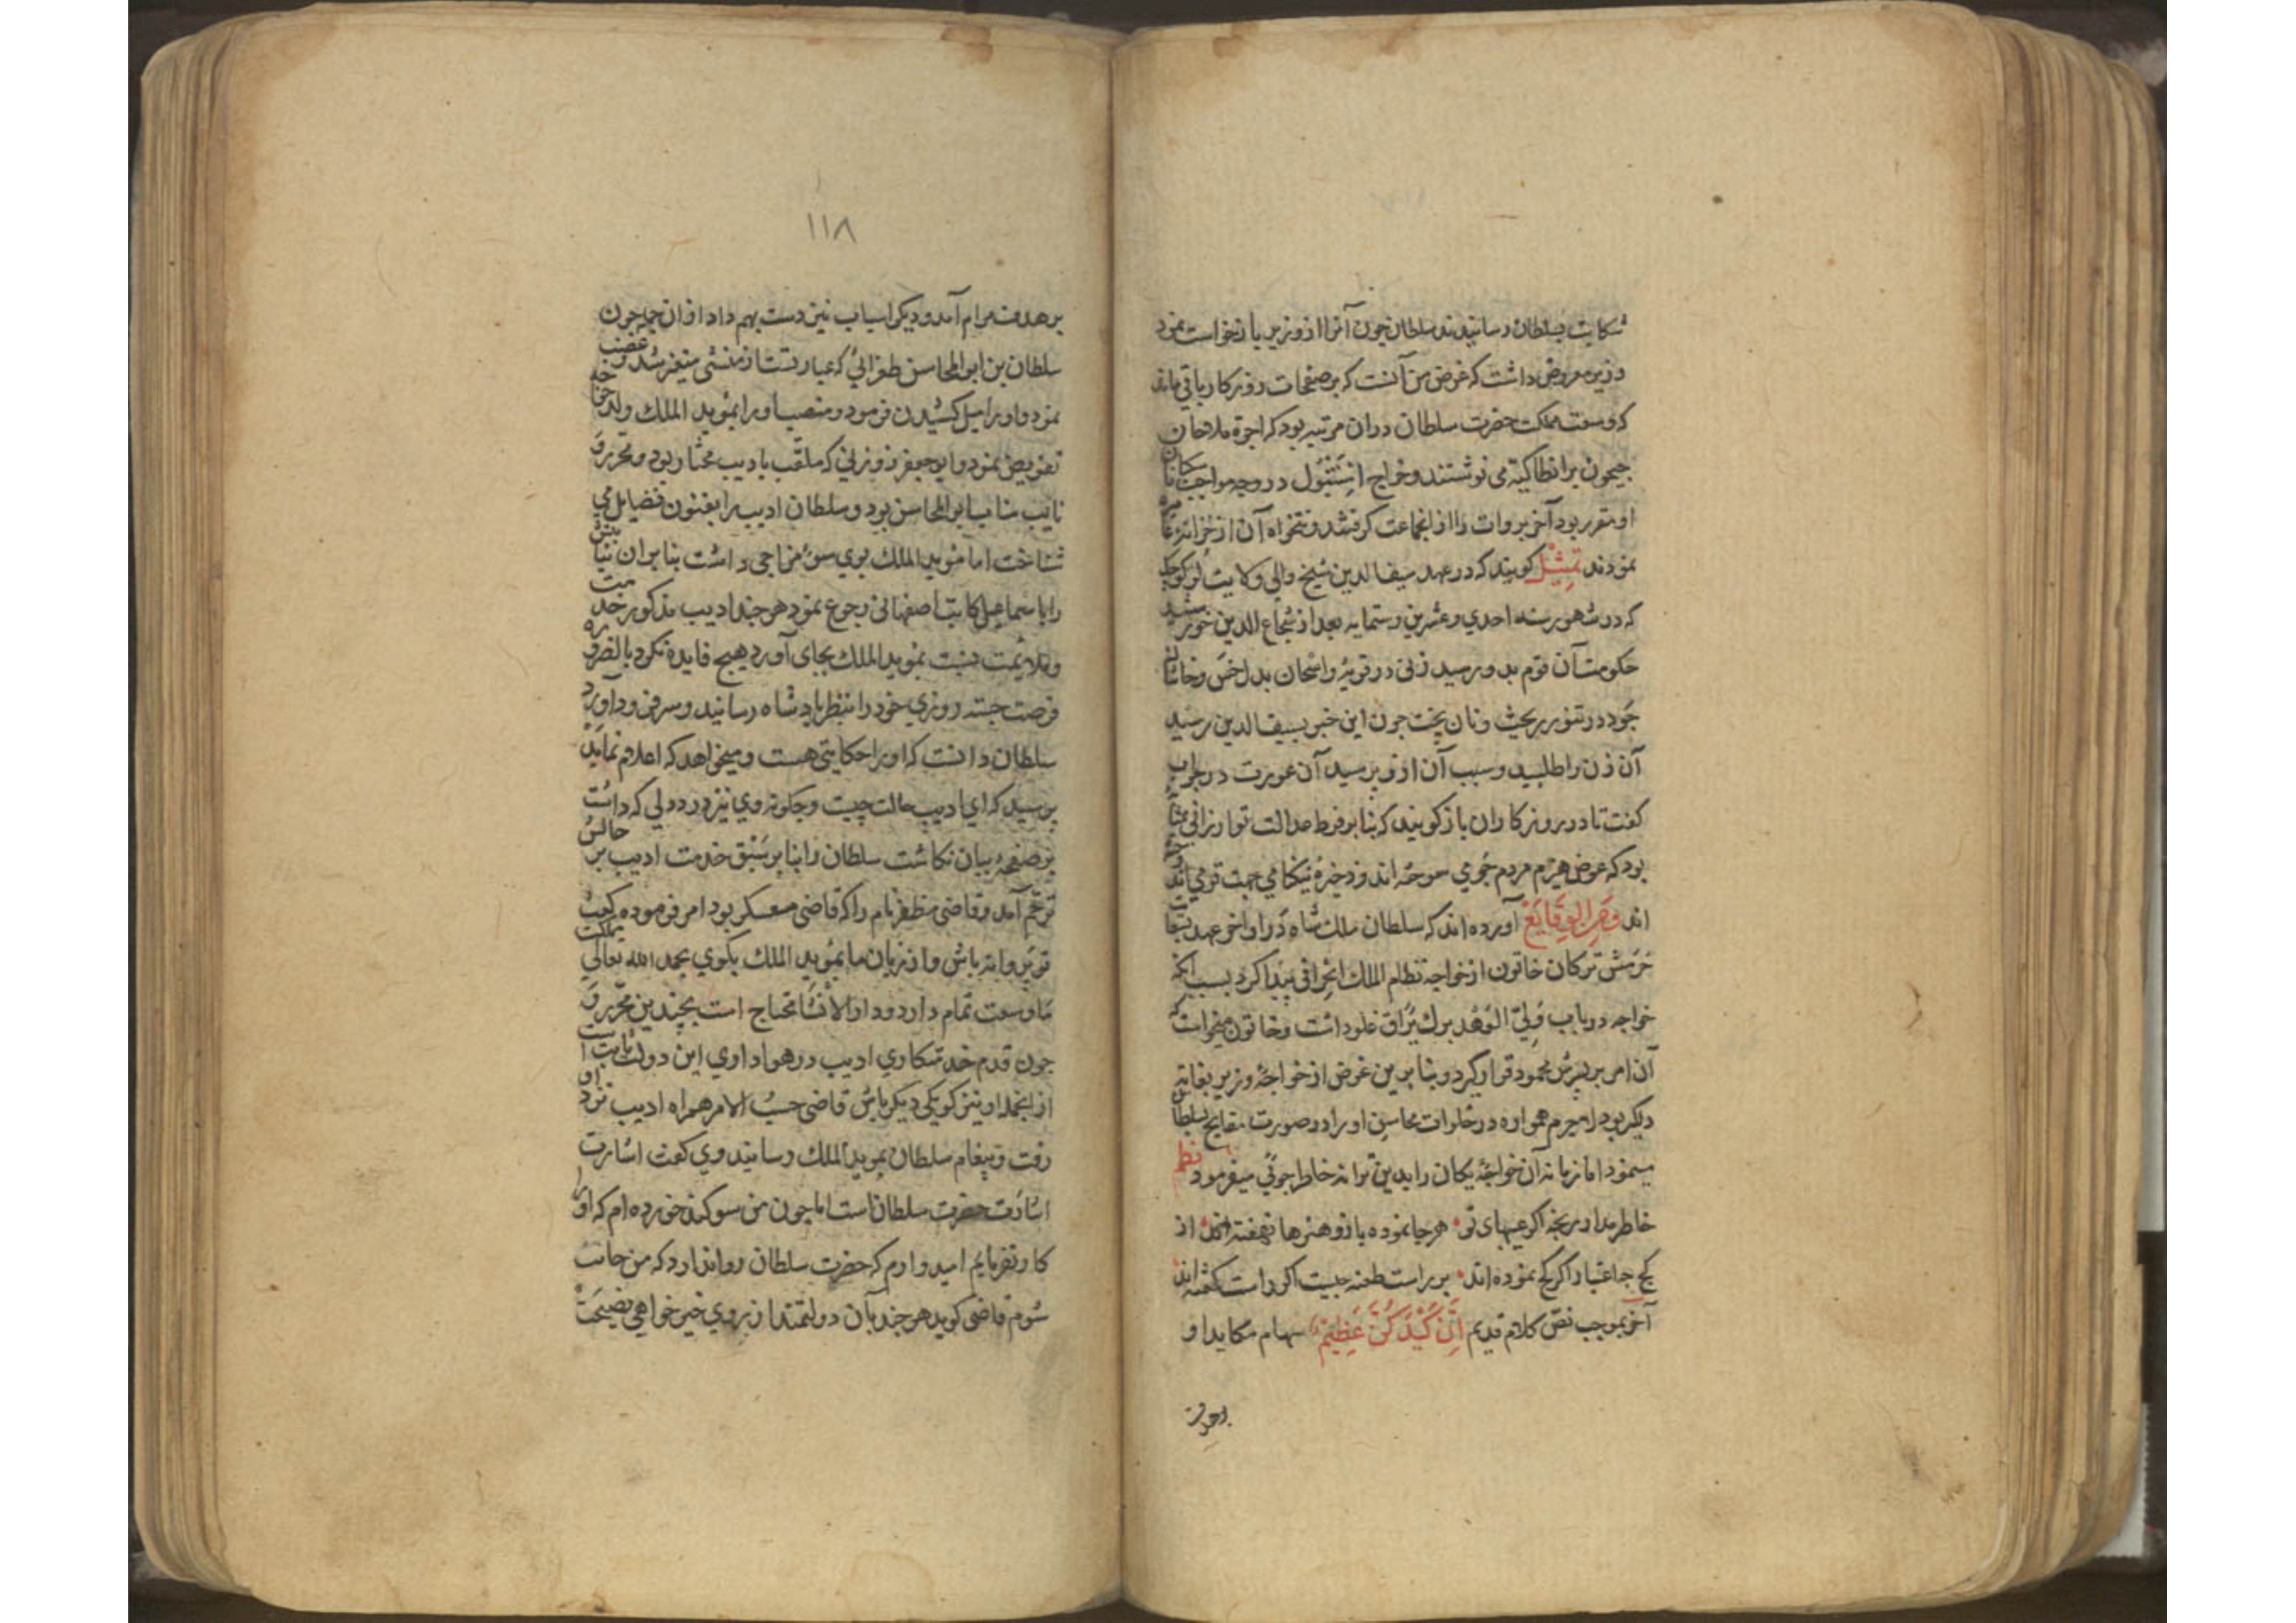 شکایت بسلطان رسانیدند سلطان چون آنرا از وزیر بازخواست نمود
وزیر معروض داشت که غرض من آنست که بر صفحات روزکار باقی ماند
که وسعت مملکت حضرت سلطان دران مرتبه بود که اجرة ملاحان
جیحون بر انطاکیه می نوشتند وخراج استنبول در وجه مواجب سکانان
او مقرر بود آخر بروات را از انجماعت کرفتند و تنخواه آن از خزانه عامره
نمودند تمثیل کویند که در عهد سیف الدین شیخ والی ولایت لر کوچک
که در شهور سنه احدی وعشرین وستمایه بعد از شجاع الدین خورشید
حکومت آن قوم بدو رسید زنی در قریهٔ واشحان بدل خس وخاشاک
جو در تنور ریخت ونان پخت چون این خبر بسیف الدین رسید
آن زن را طلبید وسبب آن ازو پرسید آن عورت در جواب
کفت تا در روزکاران باز کویند که بنابر فرط عدالت تو ارزانی بمثابه
بود که عوض هیزم مردم جو می سوخته اند وذخیرهٔ نیکنامی جهت تو می اندوخته
اند وقر الوقایع آورده اند که سلطان ملک شاه در اواخر عهد بتقاضا
حرمش ترکان خاتون از خواجه نظام الملک انحرافی پیدا کرد بسبب انکه
خواجه در باب ولی العهد برکیارق غلو داشت وخاتون میخواست که
آن امر بر پسرش محمود قرار کیرد وبنابرین غرض از خواجهٔ وزیر بغایت
دلکیر بود لاجرم همواره در خلوات محاسن او را در صورت مقابح بسلطان
مینمود اما زمانه آن خواجهٔ یکان را بدین ترانه خاطر جوئی میفرمود نظم
خاطر مدار رنجه اکر عیبهای تو هر جا نموده باز وهنرها نهفته اند از
کج جه اعتبار اکر کج نموده اند بر راست طعنه چیست اکر راست کفته اند
آخر بموجب نص کلام قدیم ان کیدکن عظیم سهام مکاید او
بر هدف
بر هدف مرام آمد ودیکر اسباب نیز دست بهم داد ازان جمله چون
سلطان بن ابو المحاسن طغرائی که عبارتست از منشی متغیر شد وغضب
نمود واو را میل کشیدن فرمود ومنصب او را بمؤید الملک ولد خواجه
تفویض نمود وابو جعفر زوزنی که ملقب بادیب مختار بود ومحرر و
نایب مناب ابو المحاسن بود وسلطان ادیب را بفنون فضایل می
شناخت اما مؤید الملک بوی سوء مزاجی داشت بنابران نیابتش
را با سماعیل کاتب اصفهانی رجوع نمود هر چند ادیب مذکور خدمت
وملایمت نسبت بمؤید الملک بجای آورد هیچ فایده نکرد بالضروره
فرصت جسته روزی خود را بنظر پادشاه رسانید وسر فرود آورد
سلطان دانست که او را حکایتی هست ومیخواهد که اعلام نماید
پرسید که ای ادیب حالت چیست وچکونه وی نیز درد دلی که داشت
بر صفحهٔ بیان نکاشت سلطان را بنابر سبق خدمت ادیب بر حالش
ترحم آمد وقاضی مظفر نام را که قاضی معسکر بود امر فرموده کفت
تو پروانه باش واز زبان ما بمؤید الملک بکوی بحمد الله تعالی مملکت
ما وسعت تمام دارد ودار الانشا محتاج است بچندین محرر و
چون قدم خدمتکاری ادیب در هواداری این دولت ثابت است
از انجمله او نیز کو یکی دیکر باش قاضی حسب الامر همراه ادیب نزد او
رفت وپیغام سلطان بمؤید الملک رسانید وی کفت اشارت
اشارت حضرت سلطان است اما چون من سوکند خورده ام که او را
کار نفرمایم امیدوارم که حضرت سلطان روا ندارد که من حانث
شوم قاضی کوید هر چند بآن دولتمند از روی خیر خواهی نصیحت
١١٨